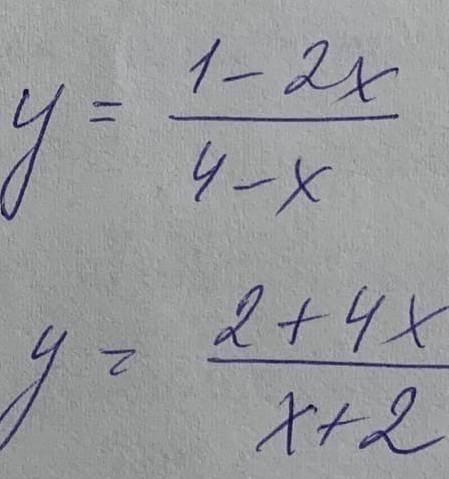 y = (1 - 2x)/(4 - x)
y = (2 + 4x)/(x + 2)